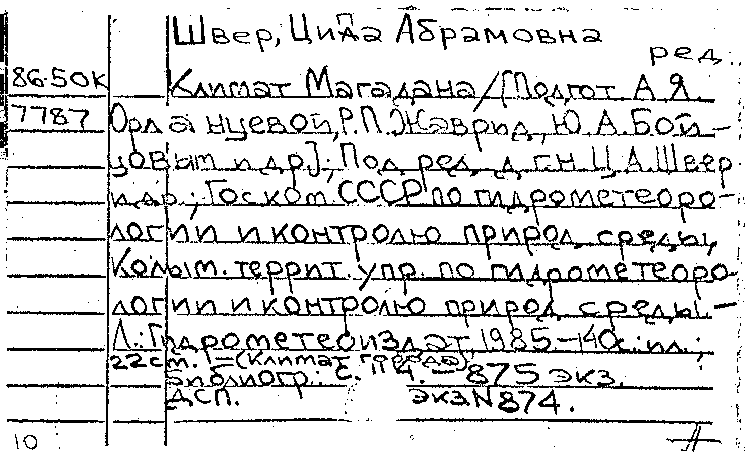 Швер, Цила Абрамовна
ред.
86-50К Климат Магадана/[Подгот. А.Я.
7787 Орла нцевой, Р.П. Жаврид, Ю.А. Бой-
цовым и др.]; Под ред. д.г.н. Ц.А. Швер
и др.; Госком. СССР по гидрометеоро-
логии и контролю природ. среды,
Колым. террит. упр. по гидрометеоро
логии и контролю природ. среды.-
Л.: Гидрометеоиздат, 1985.-140с.: ил.;
22см. -(Климат города)
Библиогр.: с. 114. - 875 экз.
ДСП. экз N 874.
10